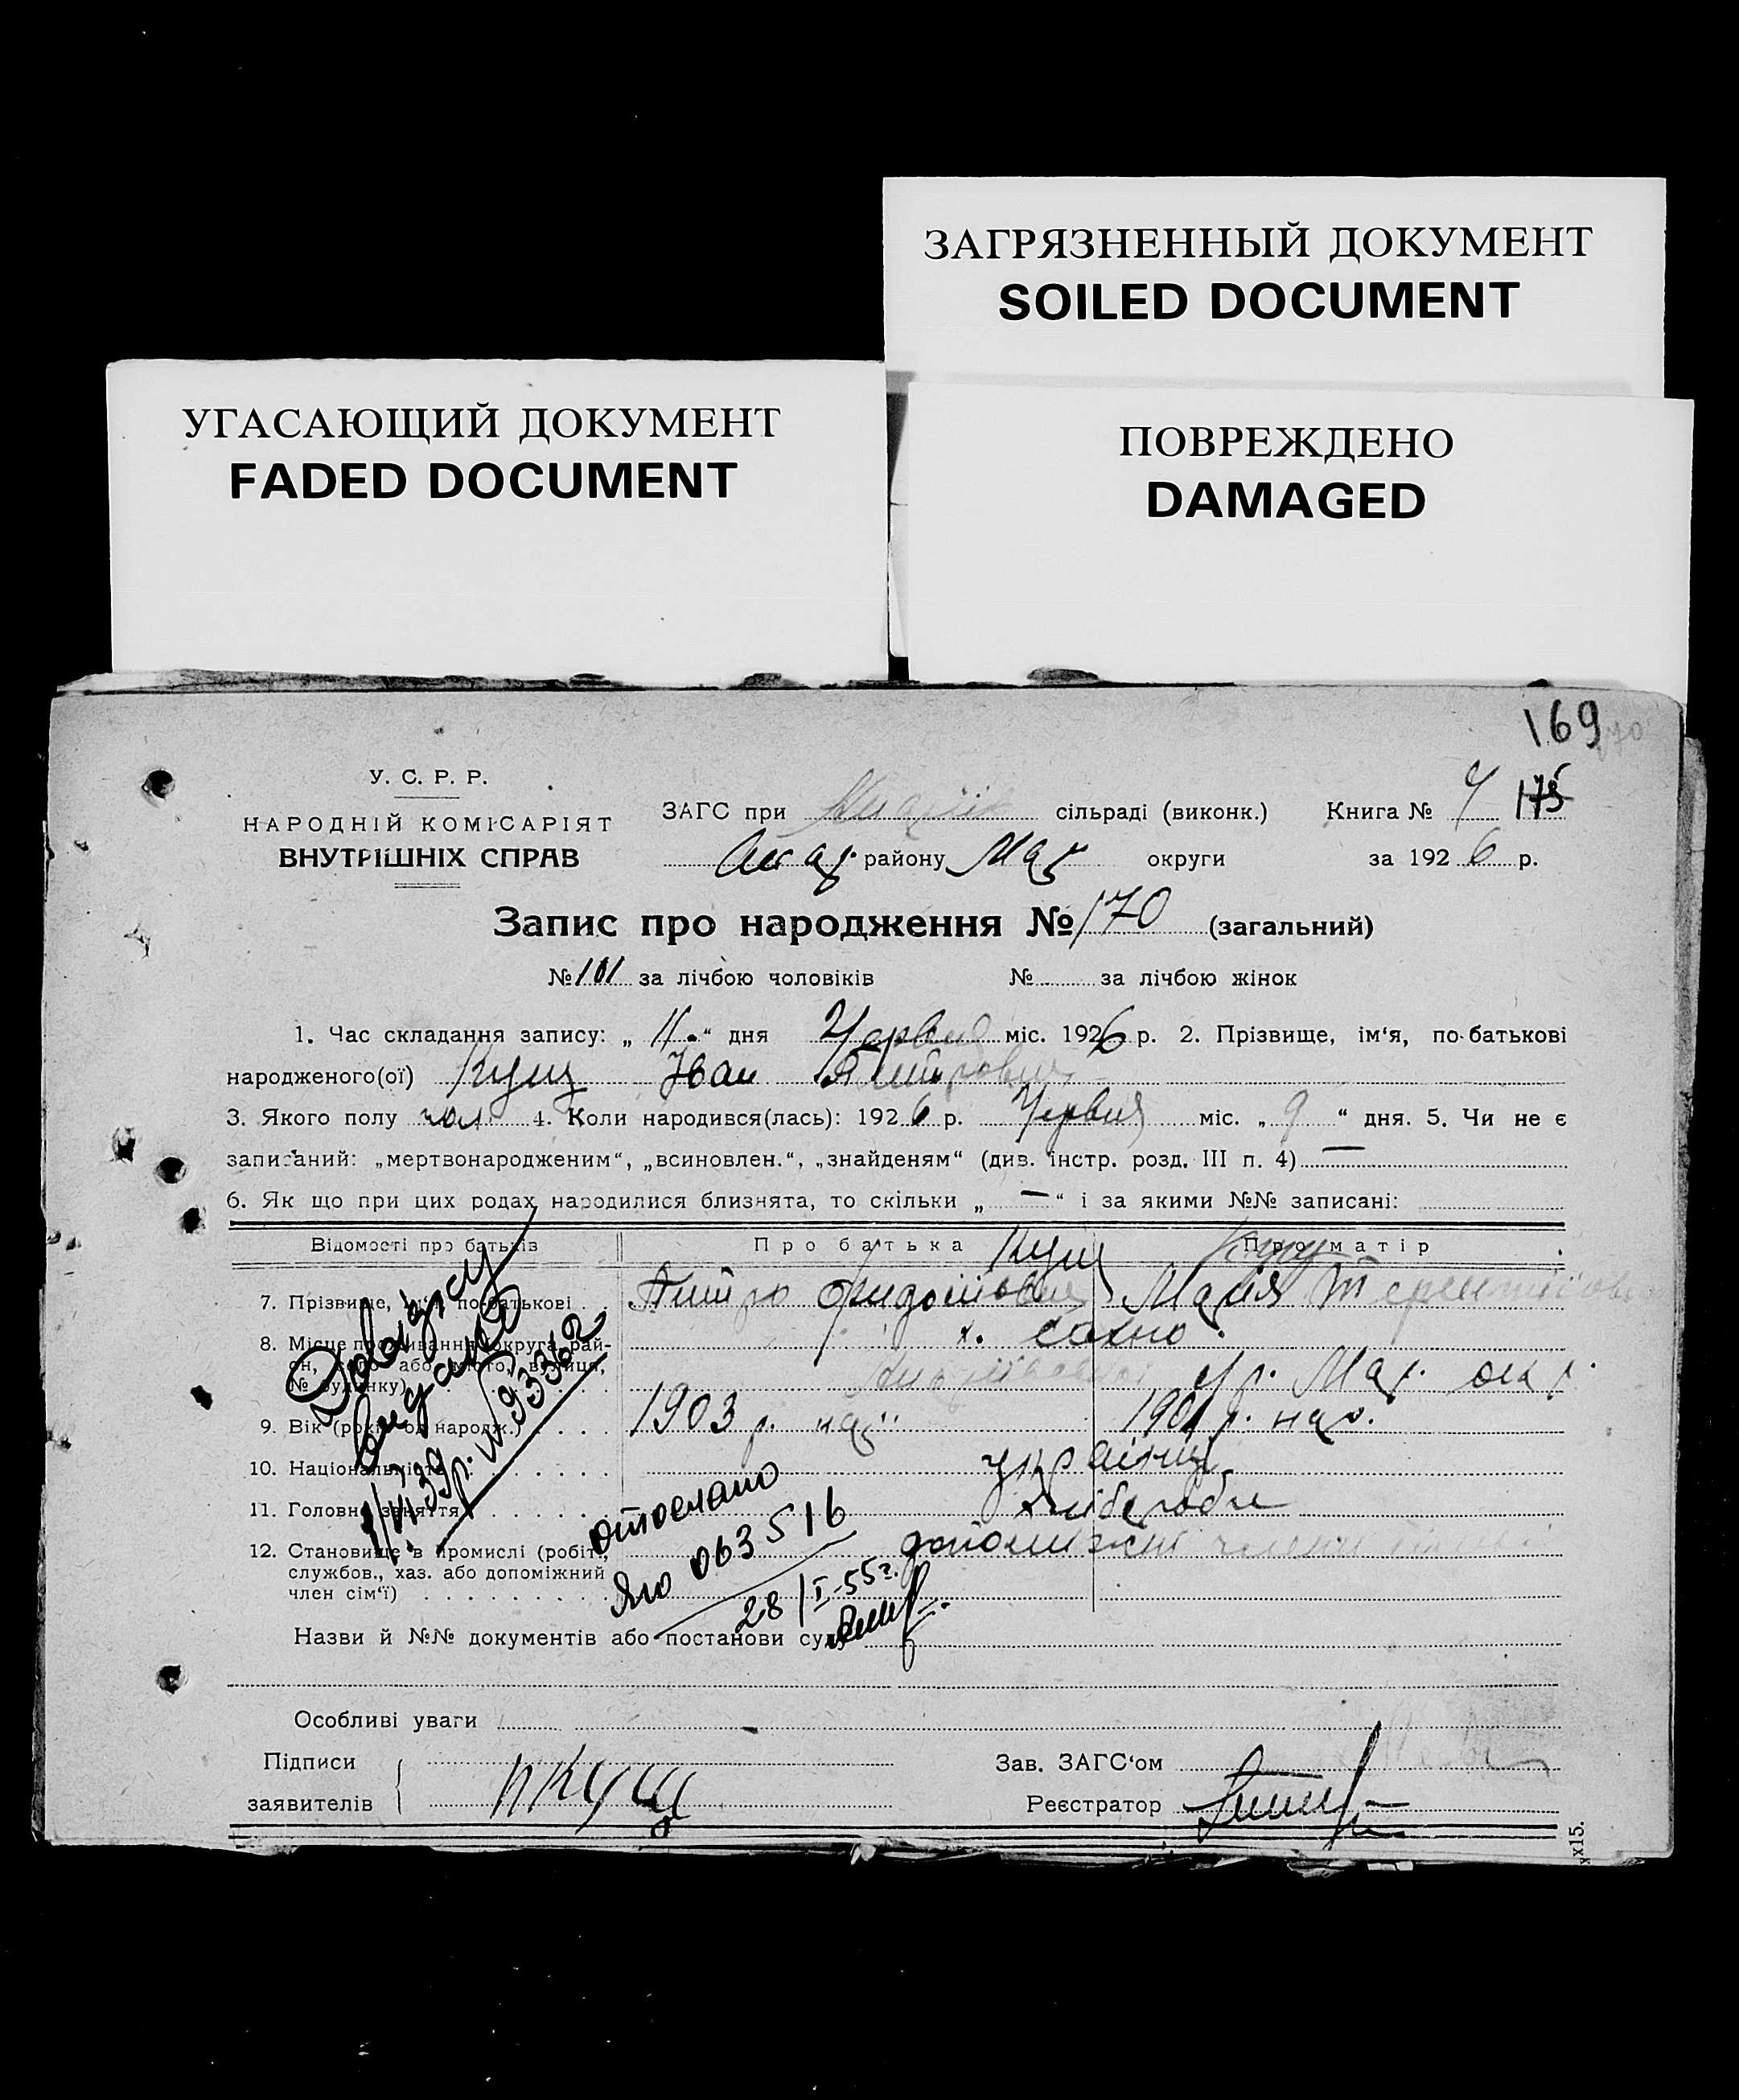 ЗАГРЯЗНЕННЫЙ ДОКУМЕНТ
SOILED DOCUMENT
УГАСАЮЩИЙ ДОКУМЕНТ
FADED DOCUMENT
ПОВРЕЖДЕНО
DAMAGED
169
У. С. Р. Р.
НАРОДНІЙ КОМІСАРІЯТ
ВНУТРІШНІХ СПРАВ
ЗАГС при сільраді (виконк.) Книга № 175
району округи за 1926 р.
Запис про народження № 170 (загальний)
№ 101 за лічбою чоловіків № за лічбою жінок
1. Час складання запису: „ 11 “ дня Червня міс. 1926 р. 2. Прізвище, ім‘я, по-батькові
народженого(ої) Кущ Іван Дмитрович
3. Якого полу чол. 4. Коли народився(лась): 1926 р. Червня міс. „ 9 “ дня. 5. Чи не є
записаний: „мертвонародженим“, „всиновлен.“, „знайденям“ (див. інстр. розд. III п. 4) —
6. Як що при цих родах народилися близнята, то скільки „ — “ і за якими №№ записані:
Відомості про батьків Про батька Кущ Про матір Кущ
7. Прізвище, ім‘я, по-батькові Дмитро Марія Терентіївна
8. Місце проживання (округа, рай-
он, село або місто, вулиця,
№ будинку)
х. Сахно
9. Вік (років од народж.) 1903 р. 1901 р. нар.
10. Національність українці
11. Головне заняття хлібороби
12. Становище в промислі (робітн., допоміжні члени
службов., хаз. або допоміжний
член сім‘ї)
Довідку
видано
р. № 93362
отослано
ЯЮ 063516
28/I-55г.
Назви й №№ документів або постанови суду
Особливі уваги
Підписи
заявителів
ПКущ
Зав. ЗАГС‘ом
Реєстратор
х15.